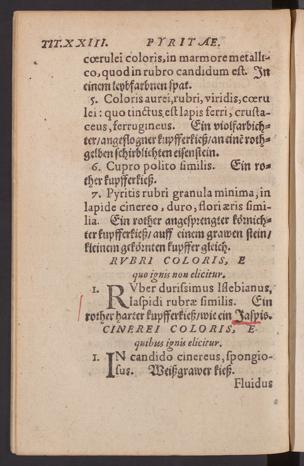 TIT.XXIII. PYRITÆ.
cœrulei coloris, in marmore metalli-
co, quod in rubro candidum est. In
einem leybfarbnen spat.
5. Coloris aurei, rubri, viridis, cœru
lei: quo tinctus est lapis ferri, crusta-
ceus, ferrugineus. Ein violfarbich-
ter/angeflogner kupfferkieß/an einẽ roth-
gelben schirblichten eisenstein.
6. Cupro polito similis. Ein ro-
ther kupfferkieß.
7. Pyritis rubri granula minima, in
lapide cinereo, duro, flori æris simi-
lia. Ein rother angesprengter körnich-
ter kupfferkieß/ auff einem grawen stein/
kleinem gekörnten kupffer gleich.
RVBRI COLORIS, E
quo ignis non elicitur.
1. RVber durissimus Islebianus,
Iaspidi rubræ similis. Ein
rother harter kupfferkieß/wie ein Jaspis.
CINEREI COLORIS, E
quibus ignis elicitur.
1. IN candido cinereus, spongio-
sus. Weißgrawer kieß.
Fluidus